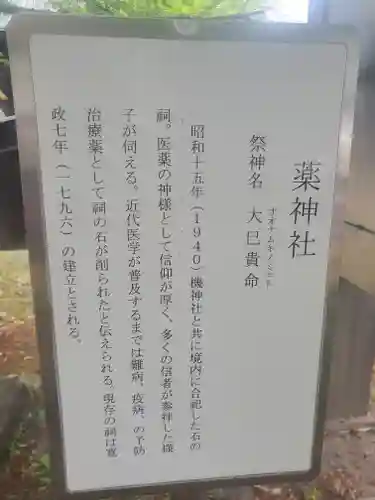 薬神社
祭神名　大巳貴命
オオナムキノミコト
昭和十五年（１９４０）機神社と共に境内に合祀した石の
祠。医薬の神様として信仰が厚く、多くの信者が参拝した様
子が伺える。近代医学が普及するまでは難病、疫病、の予防
治療薬として祠の石が削られたと伝えられる。現存の祠は寛
政七年（一七九六）の建立とされる。